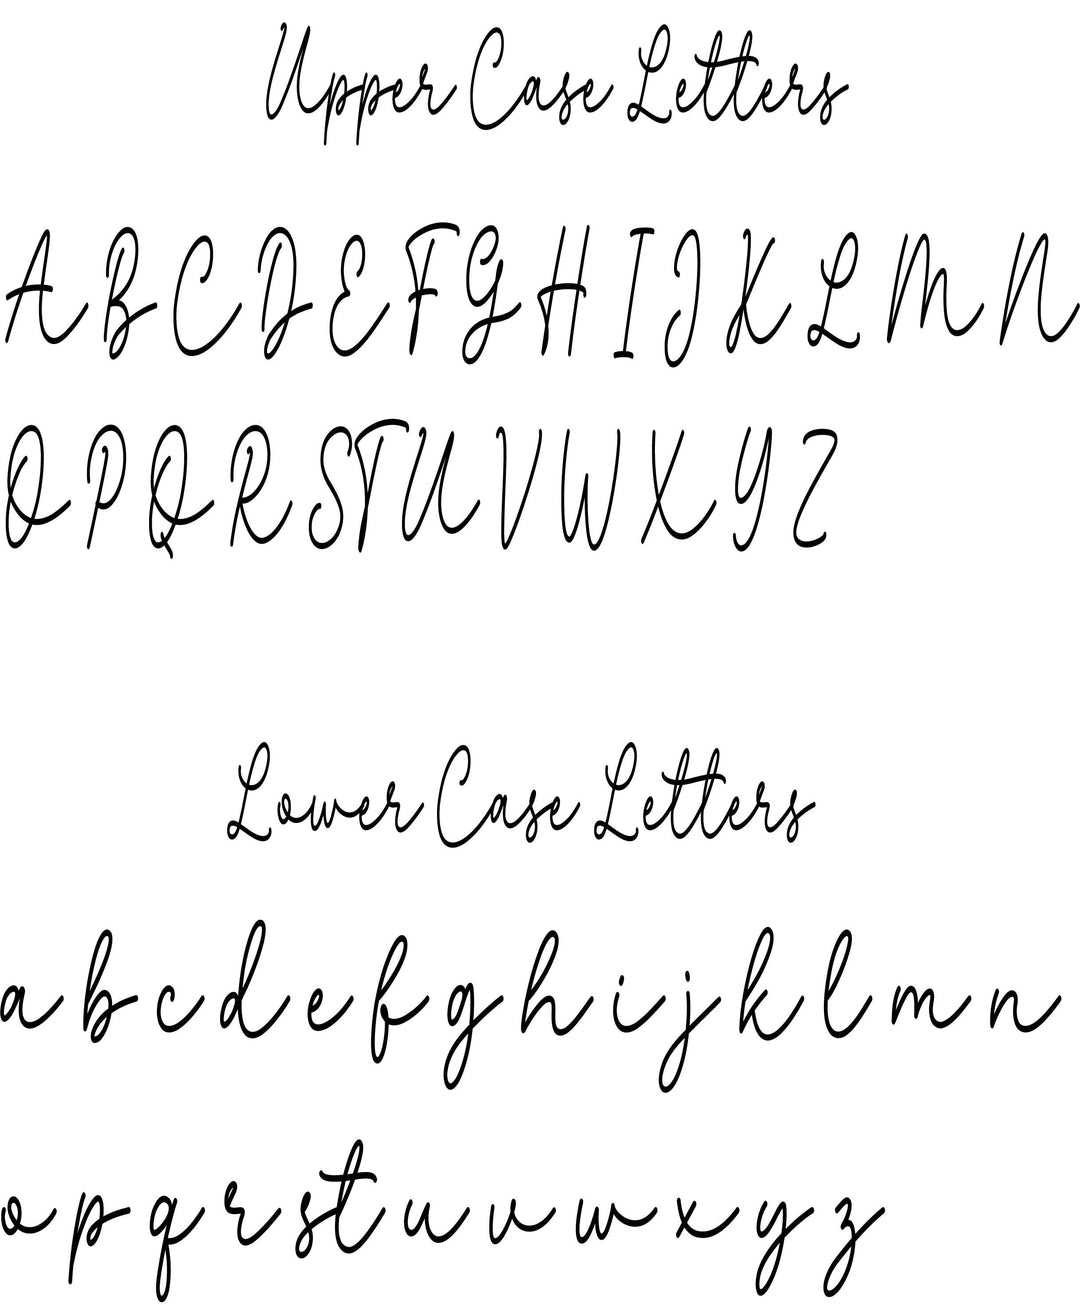 Upper Case Letters
A B C D E F G H I J K L M N
O P Q R S T U V W X Y Z
Lower Case Letters
a b c d e f g h i j k l m n
o p q r s t u v w x y z